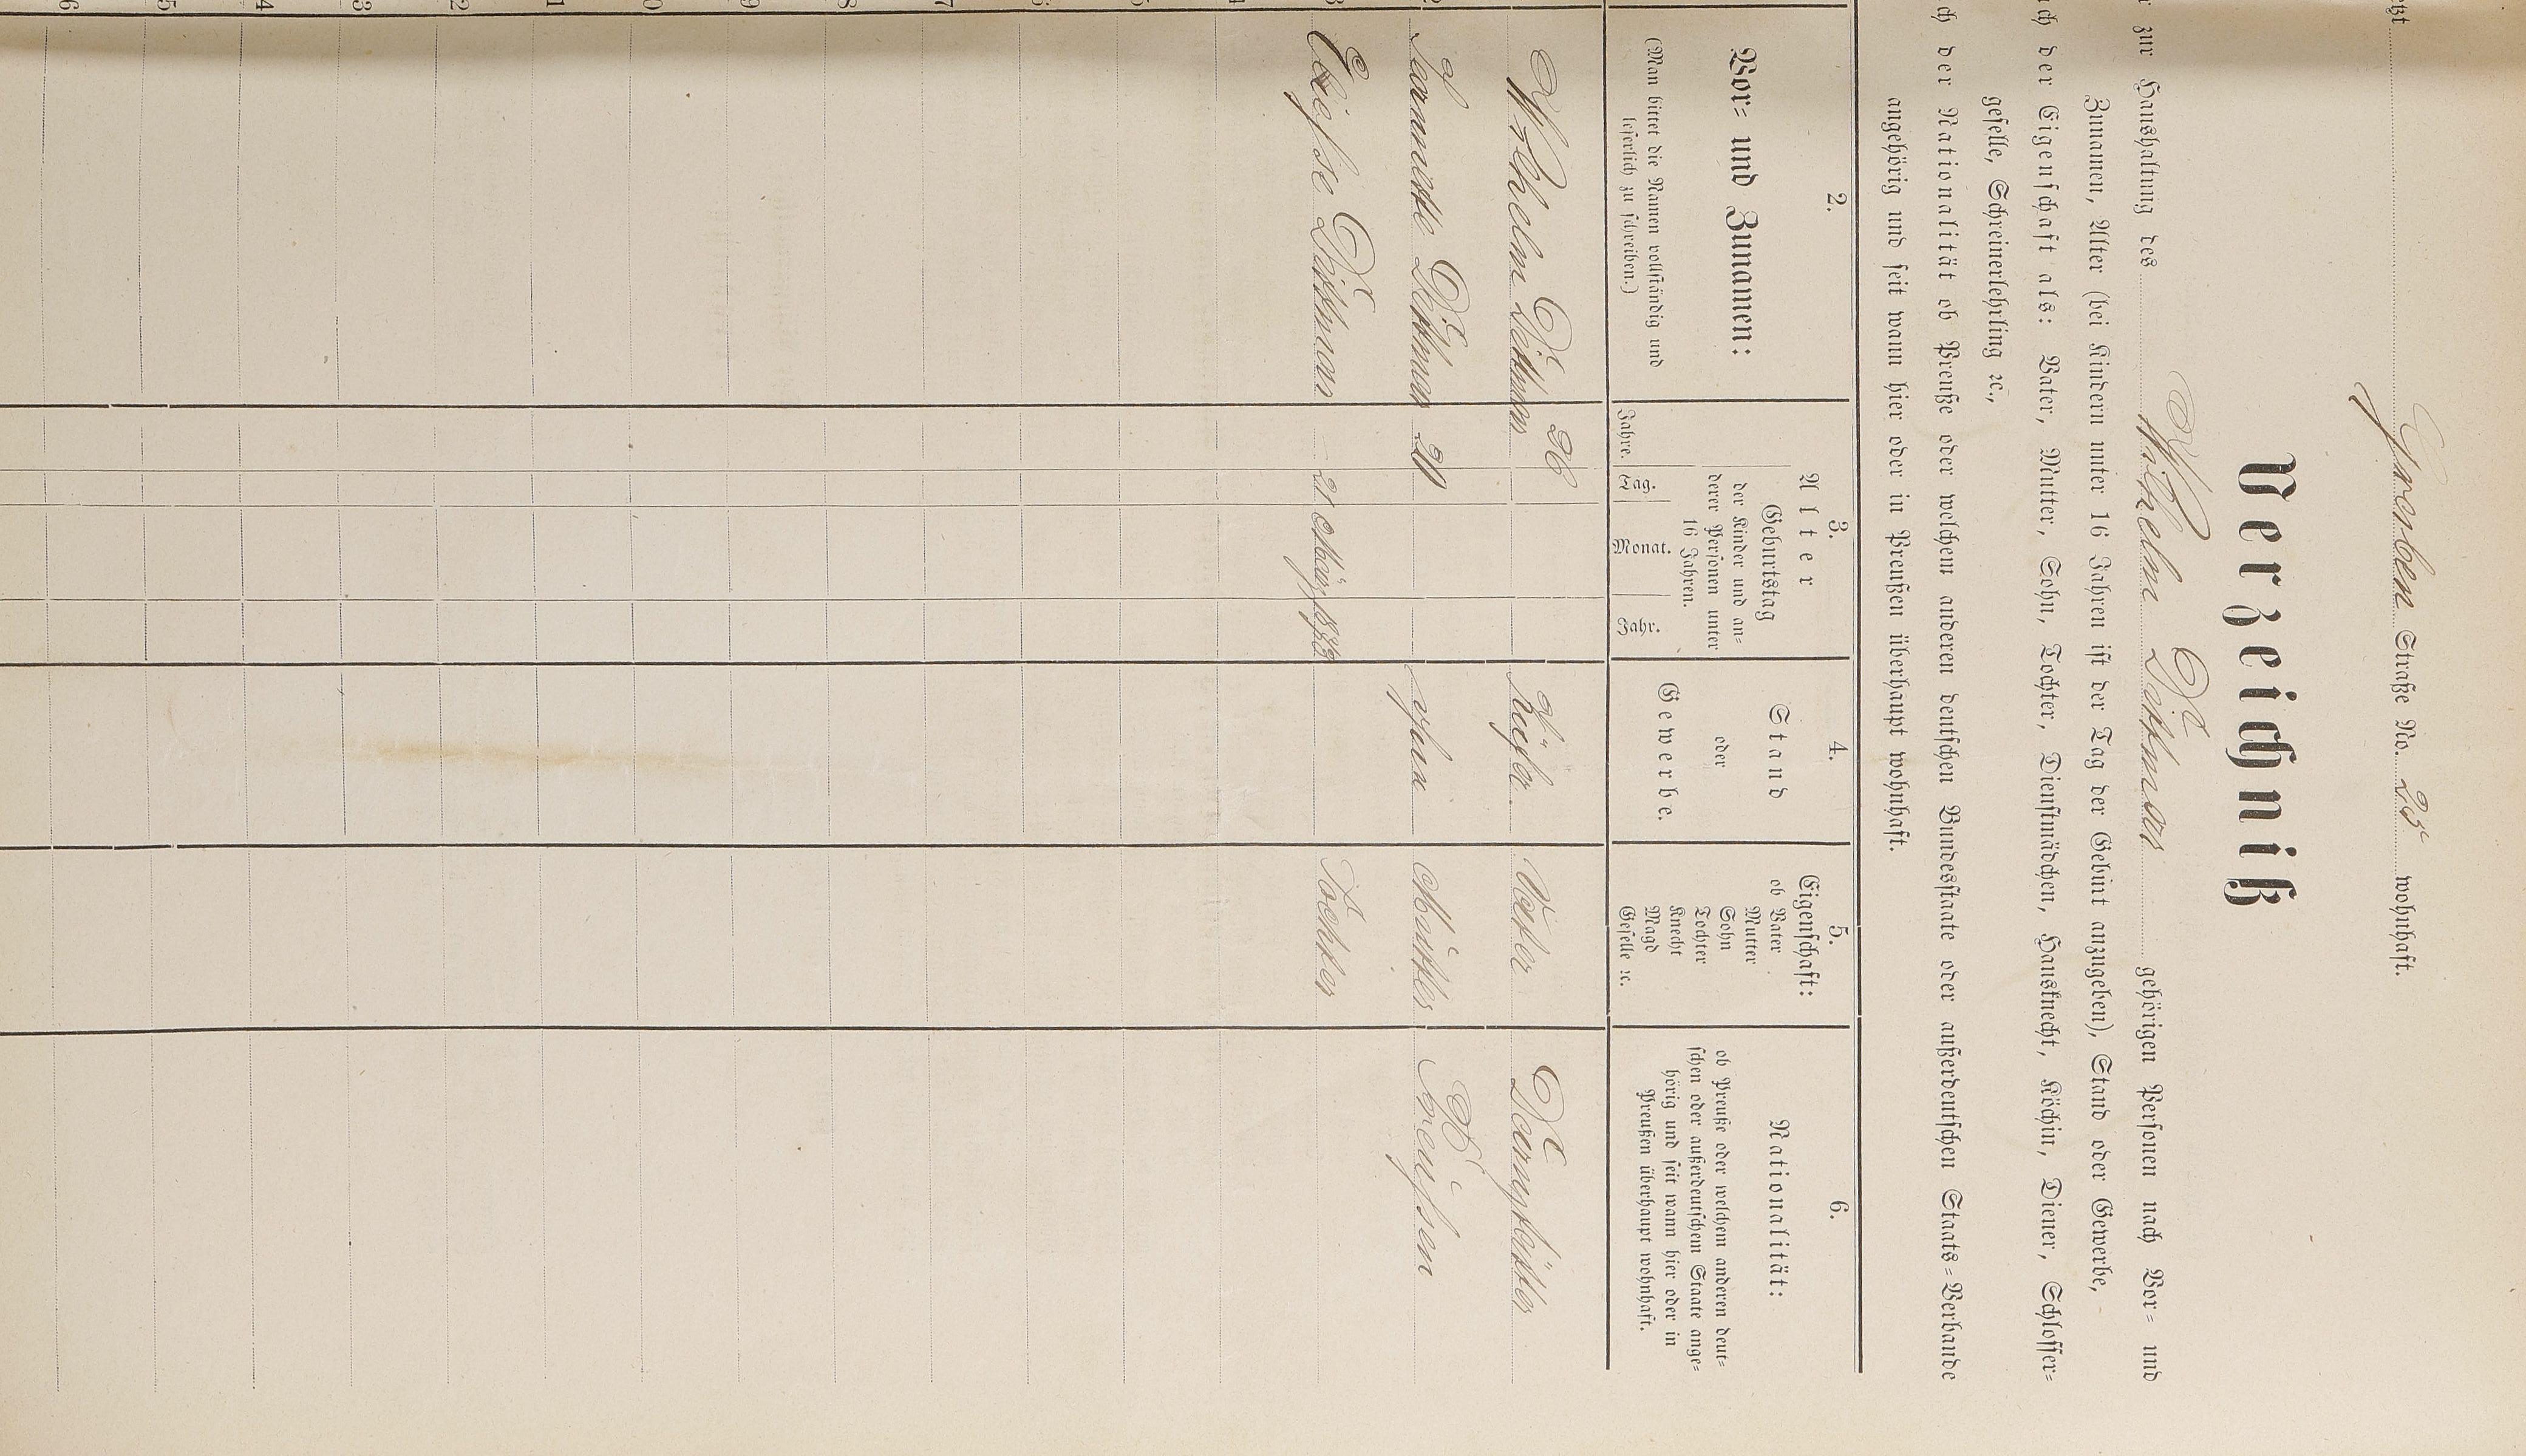 etzt Graben Straße No. 25 wohnhaft.
Verzeichniß
r zur Haushaltung des Wilhelm Dittmar gehörigen Personen nach Vor- und
Zunamen, Alter (bei Kindern unter 16 Jahren ist der Tag der Gebint anzugeben), Stand oder Gewerbe,
ich der Eigenschaft als: Vater, Mutter, Sohn, Tochter, Dienstmädchen, Hausknecht, Köchin, Diener, Schlosser-
geselle, Schreinerlehrling ꝛc.,
ch der Nationalität ob Preuße oder welchem anderen deutschen Bundesstaate oder außerdeutschen Staats-Verbande
angehörig und seit wann hier oder in Preußen überhaupt wohnhaft.
2.
Vor- und Zunamen:
(Man bittet die Namen vollständig und
leserlich zu schreiben.)
3.
Alter
Geburtstag
der Kinder und an-
derer Personen unter
16 Jahren.
Jahre.
Tag.
Monat.
Jahr.
4.
Stand
oder
Gewerbe.
5.
Eigenschaft:
ob Vater
Mutter
Sohn
Tochter
Knecht
Magd
Geselle ꝛc.
6.
Nationalität:
ob Preuße oder welchem anderen deut-
schen oder außerdeutschem Staate ange-
hörig und seit wann hier oder in
Preußen überhaupt wohnhaft.
Wilhelm Dittmar 26 Küfer Vater Darmstädter
2 Dittmar 20 Mutter Preußen
3 Dittmar 21 März Tochter
4
5
6
7
8
9
0
1
2
3
4
5
6